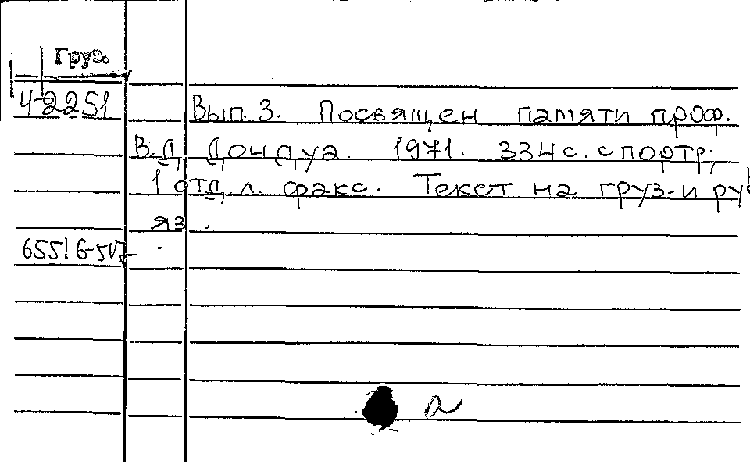 Груз.
Ч-2251
Вып. 3. Посвящен памяти проф.
В.Д. Дондуа. 1971. 334 с. с портр.;
1 отд. л. факс. Текст на груз. и ру
яз.